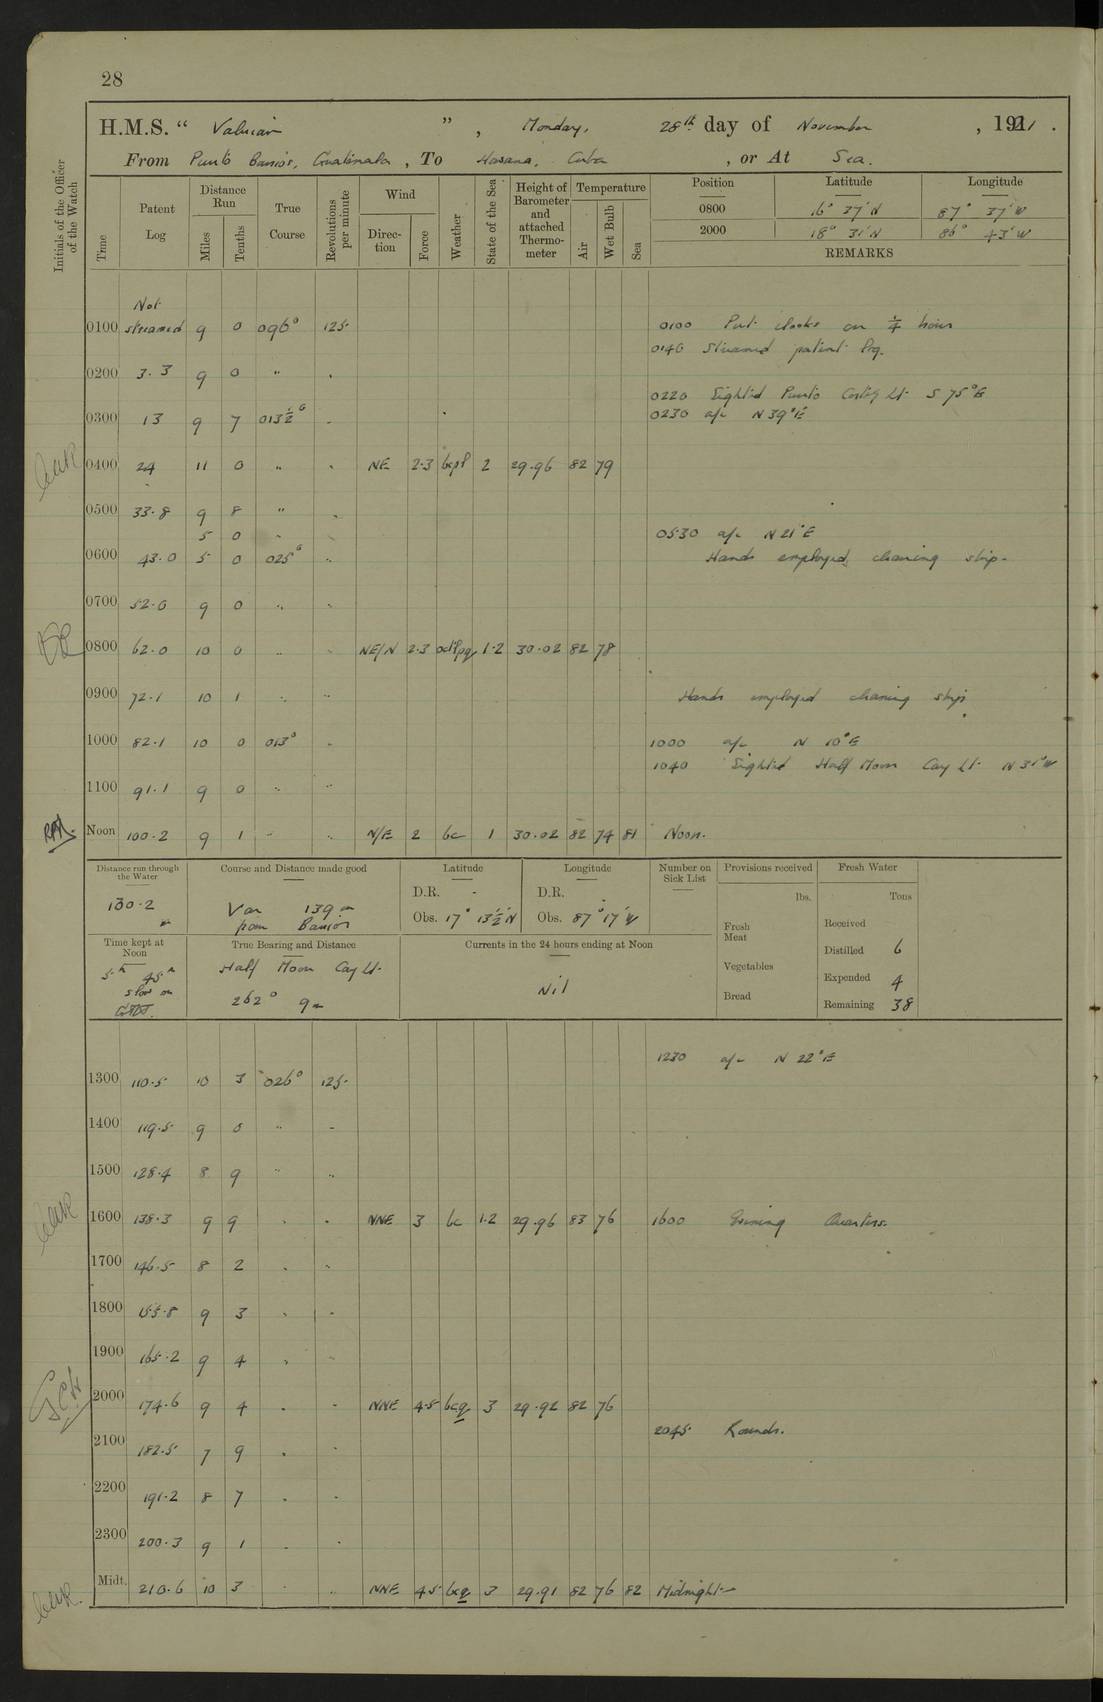 28
H.M.S. " Valerian " , Monday, 28th day of November , 1921 .
From Punto Barrios, Guatemala , To Havana, Cuba , or At Sea.
Initials of the Officer of the Watch
Time
Patent Log
Distance Run
Miles
Tenths
True Course
Revolutions per minute
Wind
Direction
Force
Weather
State of the Sea
Height of Barometer and attached Thermometer
Temperature
Air
Wet Bulb
Sea
Position Latitude Longitude
0800 16° 37' N 87° 37' W
2000 18° 31' N 86° 43' W
REMARKS
Not
0100 streamed 9 0 096° 125 0100 Put clocks on 1/4 hour
0146 Streamed patent log.
0200 3.3 9 0 " "
0220 Sighted Punto Cortez Lt. S 75° E
0230 a/c N 39° E
0300 13 9 7 "
0400 24 11 0 " " NE 2.3 2 29.96 82 79
0500 33.8 9 8 " "
5 0 " 0530 a/c N 21° E
0600 43.0 5 0 025° " Hands employed cleaning ship.
0700 52.0 9 0 " "
0800 62.0 10 0 " " NE/N 2.3 1.2 30.02 82 78
0900 72.1 10 1 " " Hands employed cleaning ship
1000 82.1 10 0 013° " 1000 a/c N 10° E
1040 Sighted Half Moon Cay Lt. N 31° W
1100 91.1 9 0 " "
Noon 100.2 9 1 " " N/E 2 bc 1 30.02 82 74 81 Noon.
Distance run through the Water
100.2 m
Course and Distance made good
Var 139 m
from Barrios
Latitude
D.R. -
Obs. 17° 13½' N
Longitude
D.R. .
Obs. 87° 17' W
Number on Sick List
Provisions received
lbs.
Fresh Meat
Vegetables
Bread
Fresh Water
Tons
Received
Distilled 6
Expended 4
Remaining 38
Time kept at Noon
5h 45m
slow on
GMT.
True Bearing and Distance
Half Moon Cay Lt.
262° 9m
Currents in the 24 hours ending at Noon
Nil
1230 a/c N 22° E
1300 110.5 10 3 026° 125
1400 119.5 9 0 " "
1500 128.4 8 9 " "
1600 138.3 9 9 " " NNE 3 bc 1.2 29.96 83 76 1600 Evening Quarters.
1700 146.5 8 2 " "
1800 155.8 9 3 " "
1900 165.2 9 4 " "
2000 174.6 9 4 " " NNE 4.5 bcq 3 29.92 82 76
2045 Rounds.
2100 182.5 7 9 " "
2200 191.2 8 7 " "
2300 200.3 9 1 " "
Midt. 210.6 10 3 " " NNE 4.5 bcq 3 29.91 82 76 82 Midnight